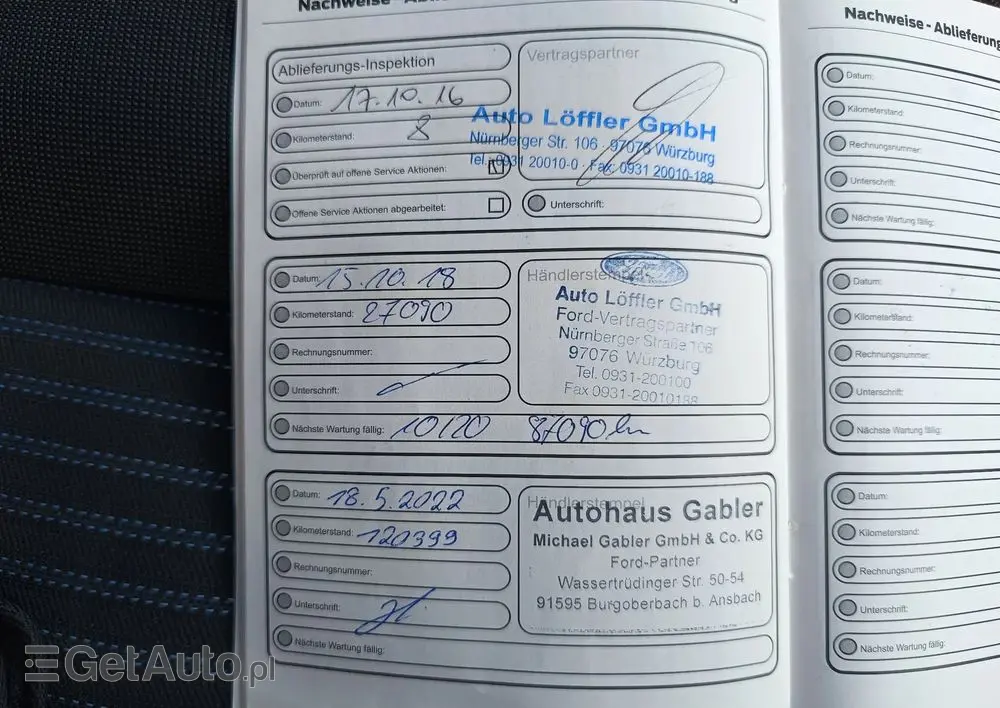 Ablieferungs-Inspektion
Datum: 17.10.16
Kilometerstand: 8
Überprüft auf offene Service Aktionen:
Offene Service Aktionen abgearbeitet:
Vertragspartner
Auto Löffler GmbH
Nürnberger Str. 106 · 97076 Würzburg
Tel. 0931 20010-0 · Fax 0931 20010-188
Unterschrift:
Datum: 15.10.18
Kilometerstand: 27090
Rechnungsnummer:
Unterschrift:
Nächste Wartung fällig: 10/20 87090 km
Händlerstempel
Auto Löffler GmbH
Ford-Vertragspartner
Nürnberger Straße 106
97076 Würzburg
Tel. 0931-200100
Fax 0931-20010188
Datum: 18.5.2022
Kilometerstand: 120399
Rechnungsnummer:
Unterschrift:
Nächste Wartung fällig:
Händlerstempel
Autohaus Gabler
Michael Gabler GmbH & Co. KG
Ford-Partner
Wassertrüdinger Str. 50-54
91595 Burgoberbach b. Ansbach
Nachweise - Ablieferung
Datum:
Kilometerstand:
Rechnungsnummer:
Unterschrift:
Nächste Wartung fällig:
Datum:
Kilometerstand:
Rechnungsnummer:
Unterschrift:
Nächste Wartung fällig:
Datum:
Kilometerstand:
Rechnungsnummer:
Unterschrift:
Nächste Wartung fällig:
GetAuto.pl